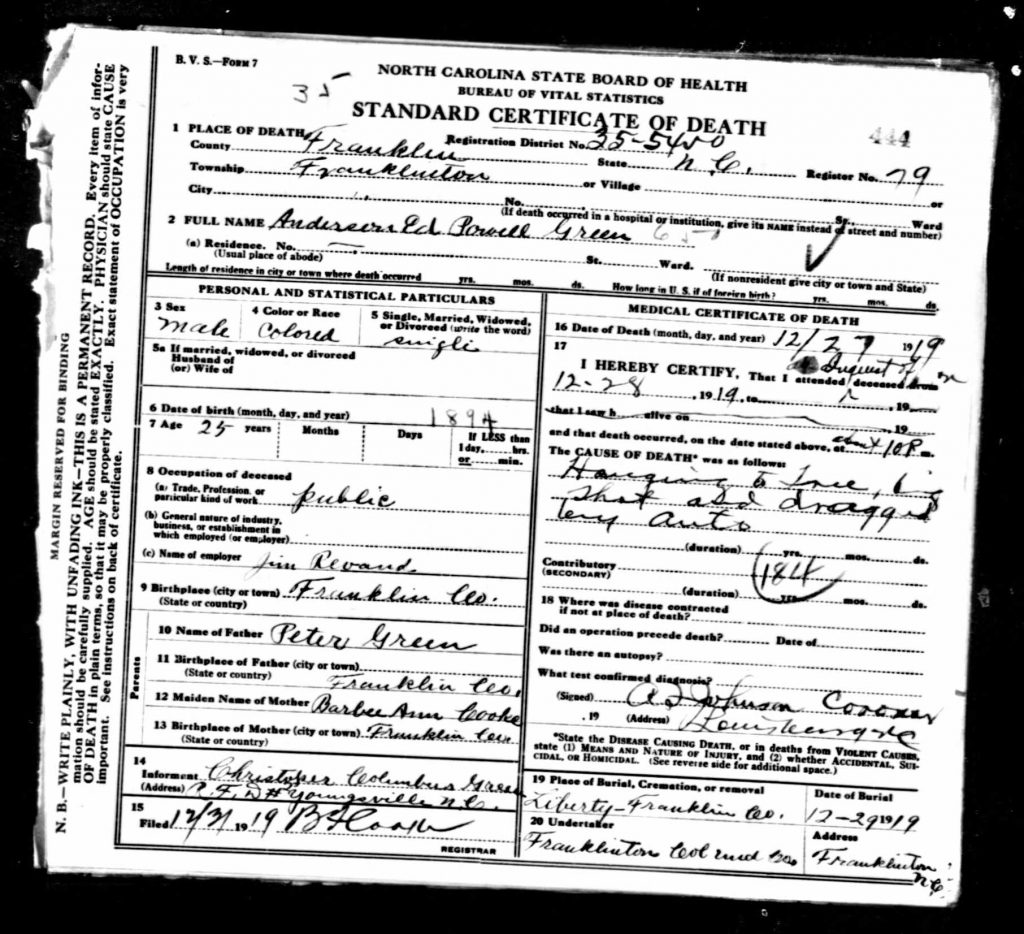 B. V. S.—FORM 7
35
NORTH CAROLINA STATE BOARD OF HEALTH
BUREAU OF VITAL STATISTICS
STANDARD CERTIFICATE OF DEATH
444
1 PLACE OF DEATH
Registration District No. 35-5450
County Franklin State N.C. Register No. 79
Township Franklinton or Village or
City No. St. Ward
(If death occurred in a hospital or institution, give its NAME instead of street and number)
2 FULL NAME Anderson Ed Powell Green 65
(a) Residence. No. — St. Ward.
(Usual place of abode) (If nonresident give city or town and State)
Length of residence in city or town where death occurred yrs. mos. ds. How long in U. S. if of foreign birth? yrs. mos. ds.
PERSONAL AND STATISTICAL PARTICULARS
3 Sex 4 Color or Race 5 Single, Married, Widowed,
or Divorced (write the word)
male colored
5a If married, widowed, or divorced
Husband of
(or) Wife of
6 Date of birth (month, day, and year) 1894
7 Age 25 years Months Days If LESS than
1 day, hrs.
or min.
8 Occupation of deceased
(a) Trade, Profession, or
particular kind of work public
(b) General nature of industry,
business, or establishment in
which employed (or employer)
(c) Name of employer Jim
9 Birthplace (city or town) Franklin Co.
(State or country)
Parents
10 Name of Father Peter Green
11 Birthplace of Father (city or town)
(State or country) Franklin Co.
12 Maiden Name of Mother Barbee Ann Cooke
13 Birthplace of Mother (city or town) Franklin Co.
(State or country)
14
Informent Christoper Columbus Green
(Address) R.F.D # Youngsville N.C.
15
Filed 12/31 1919
REGISTRAR
MEDICAL CERTIFICATE OF DEATH
16 Date of Death (month, day, and year) 12/27 1919
17
I HEREBY CERTIFY, That I attended deceased from
12-28, 1919, to , 19
that I saw h alive on , 19
and that death occurred, on the date stated above, at about 10 P m.
The CAUSE OF DEATH* was as follows:
Hanging to Tree, being
shot and dragged
by auto
(duration) yrs. mos. ds.
Contributory
(SECONDARY)
184
(duration) yrs. mos. ds.
18 Where was disease contracted
if not at place of death?
Did an operation precede death? Date of
Was there an autopsy?
What test confirmed diagnosis?
(Signed) Johnson Coroner
, 19 (Address) Louisburg NC
*State the DISEASE CAUSING DEATH, or in deaths from VIOLENT CAUSES,
state (1) MEANS AND NATURE OF INJURY, and (2) whether ACCIDENTAL, SUI-
CIDAL, or HOMICIDAL. (See reverse side for additional space.)
19 Place of Burial, Cremation, or removal Date of Burial
Liberty-Franklin Co. 12-29 1919
20 Undertaker Address
Franklinton Col Und Co. Franklinton
N.C.
MARGIN RESERVED FOR BINDING
N. B.—WRITE PLAINLY, WITH UNFADING INK—THIS IS A PERMANENT RECORD. Every item of infor-
mation should be carefully supplied. AGE should be stated EXACTLY. PHYSICIAN should state CAUSE
OF DEATH in plain terms, so that it may be properly classified. Exact statement of OCCUPATION is very
important. See instructions on back of certificate.